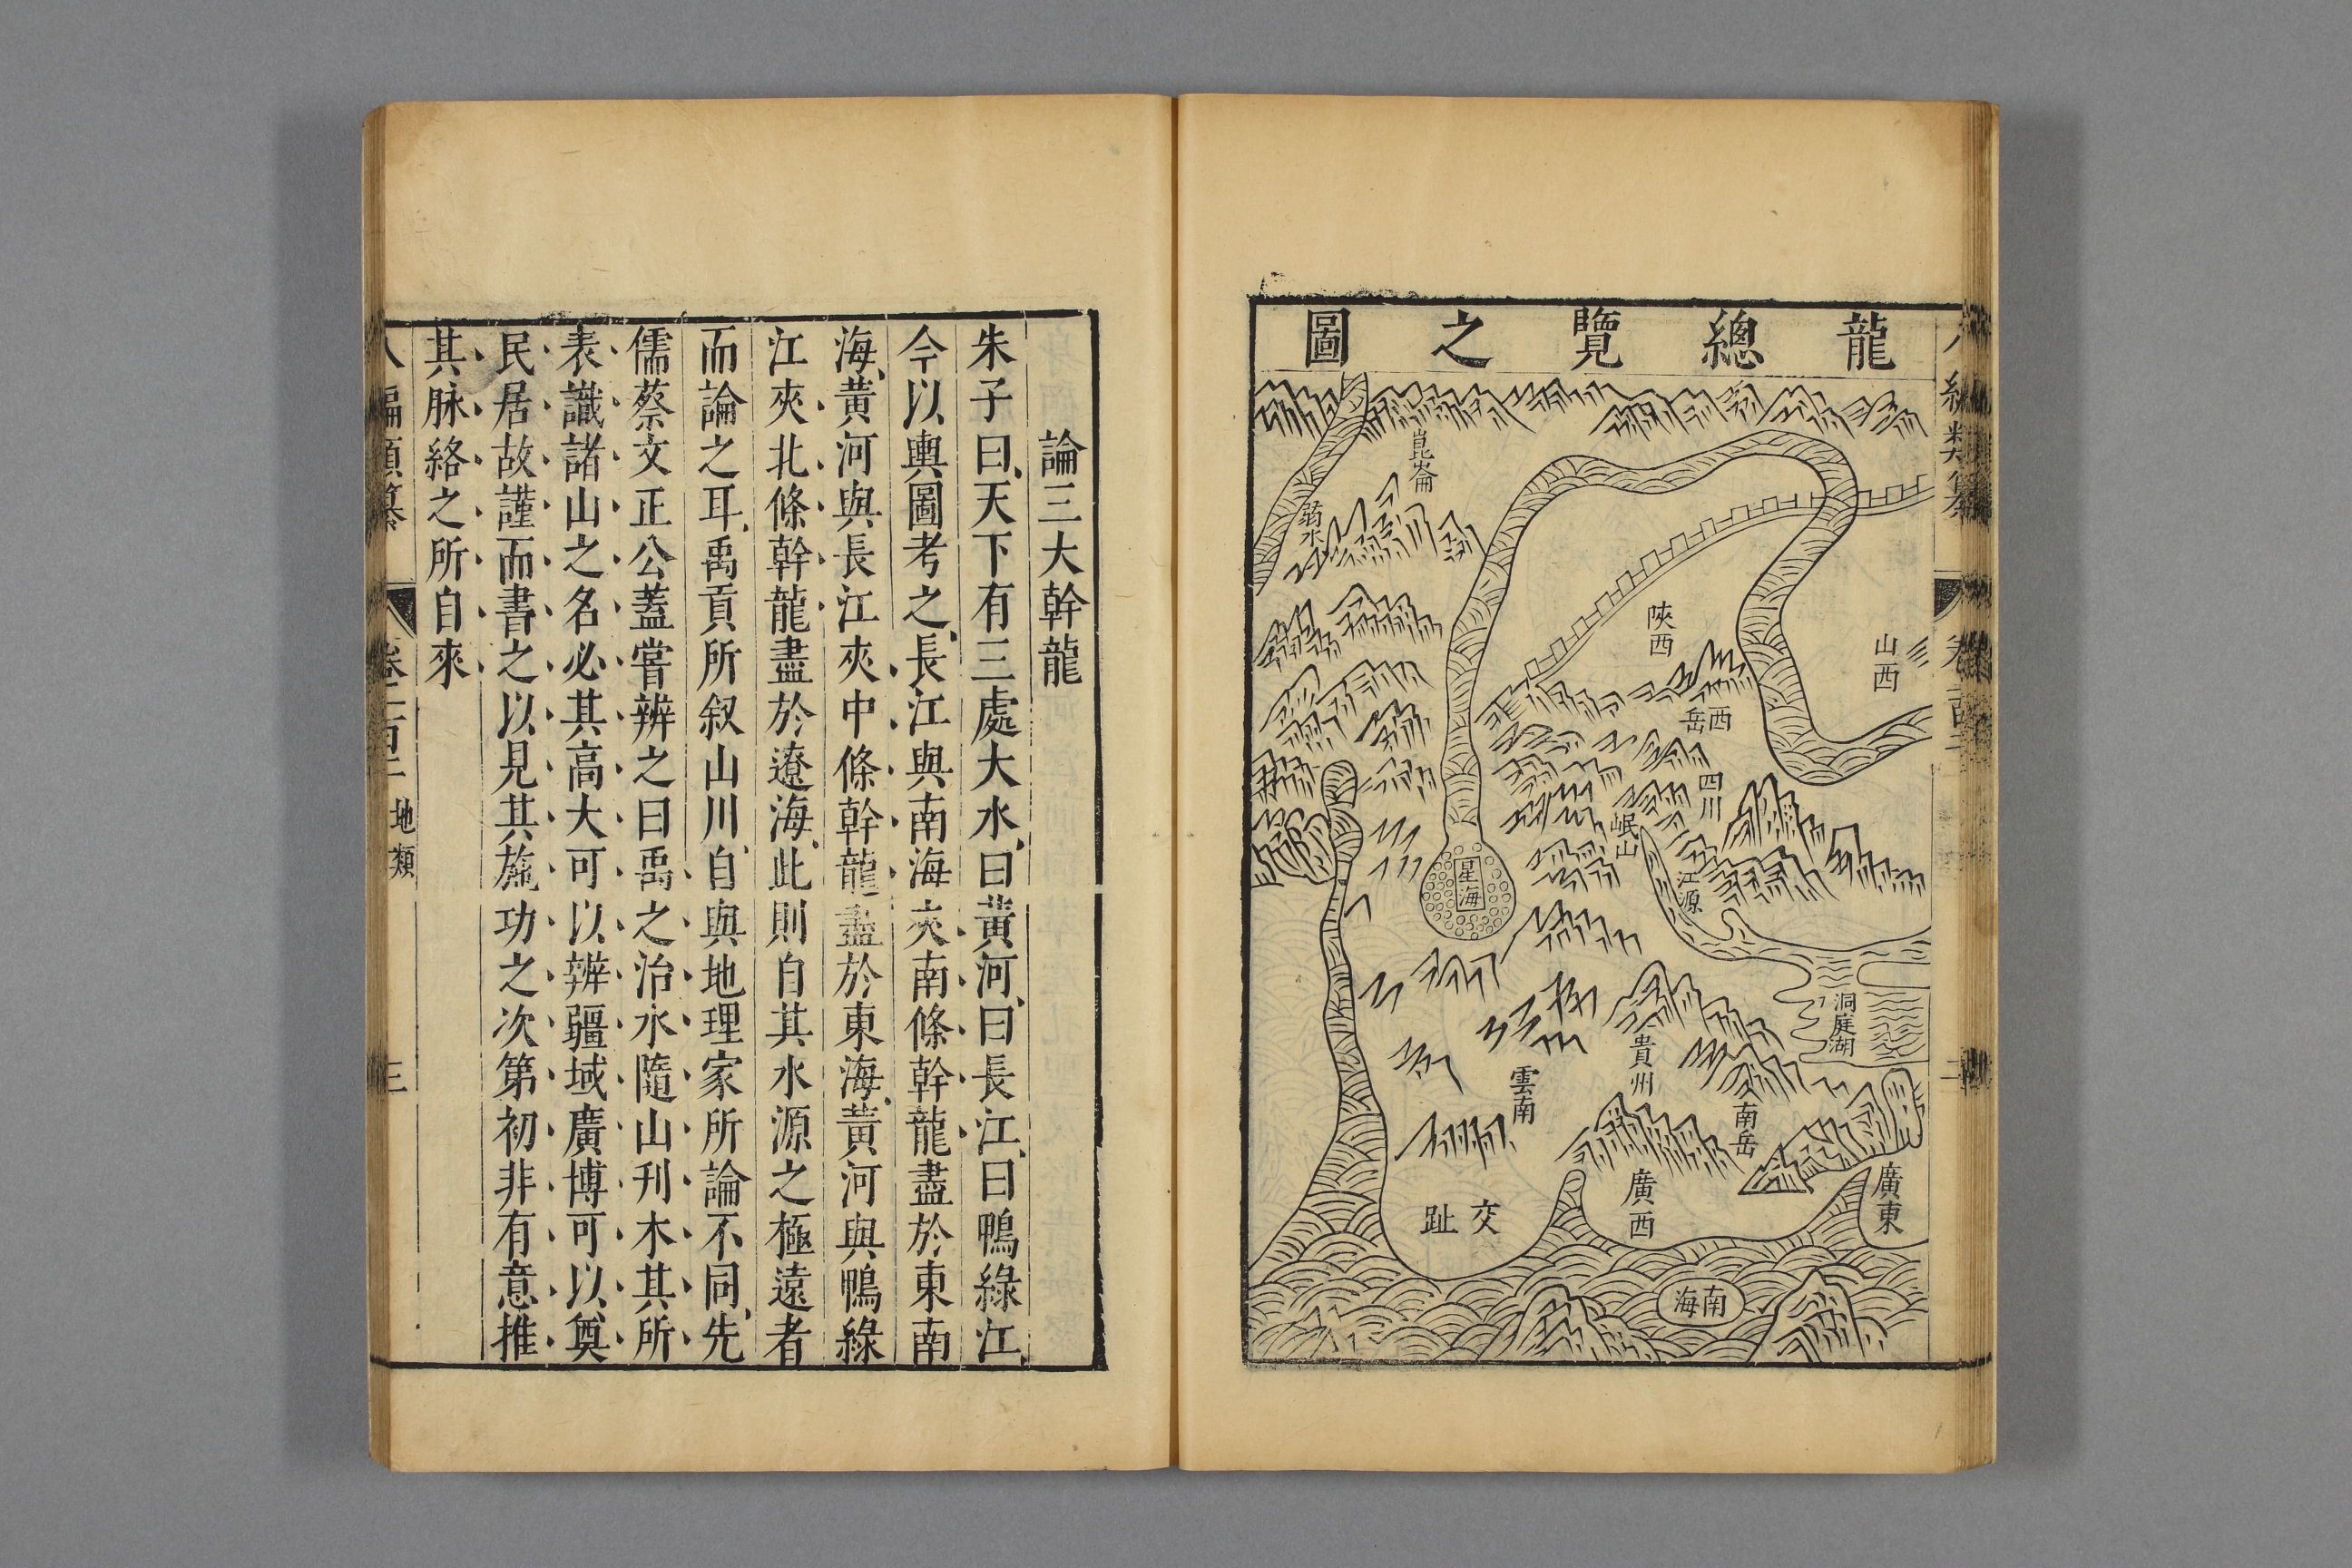 龍總覽之圖
崑崙
弱水
陜西
山西
西岳
四川
岷山
江源
星海
洞庭湖
貴州
雲南
南岳
廣西
廣東
交趾
南海
論三大幹龍
朱子曰天下有三處大水曰黃河曰長江曰鴨綠江
今以輿圖考之長江與南海夾南條幹龍盡於東南
海黃河與長江夾中條幹龍盡於東海黃河與鴨綠
江夾北條幹龍盡於遼海此則自其水源之極遠者
而論之耳禹貢所叙山川自與地理家所論不同先
儒蔡文正公蓋嘗辨之曰禹之治水隨山刊木其所
表識諸山之名必其高大可以辨疆域廣博可以奠
民居故謹而書之以見其施功之次第初非有意推
其脉絡之所自來
地類
三